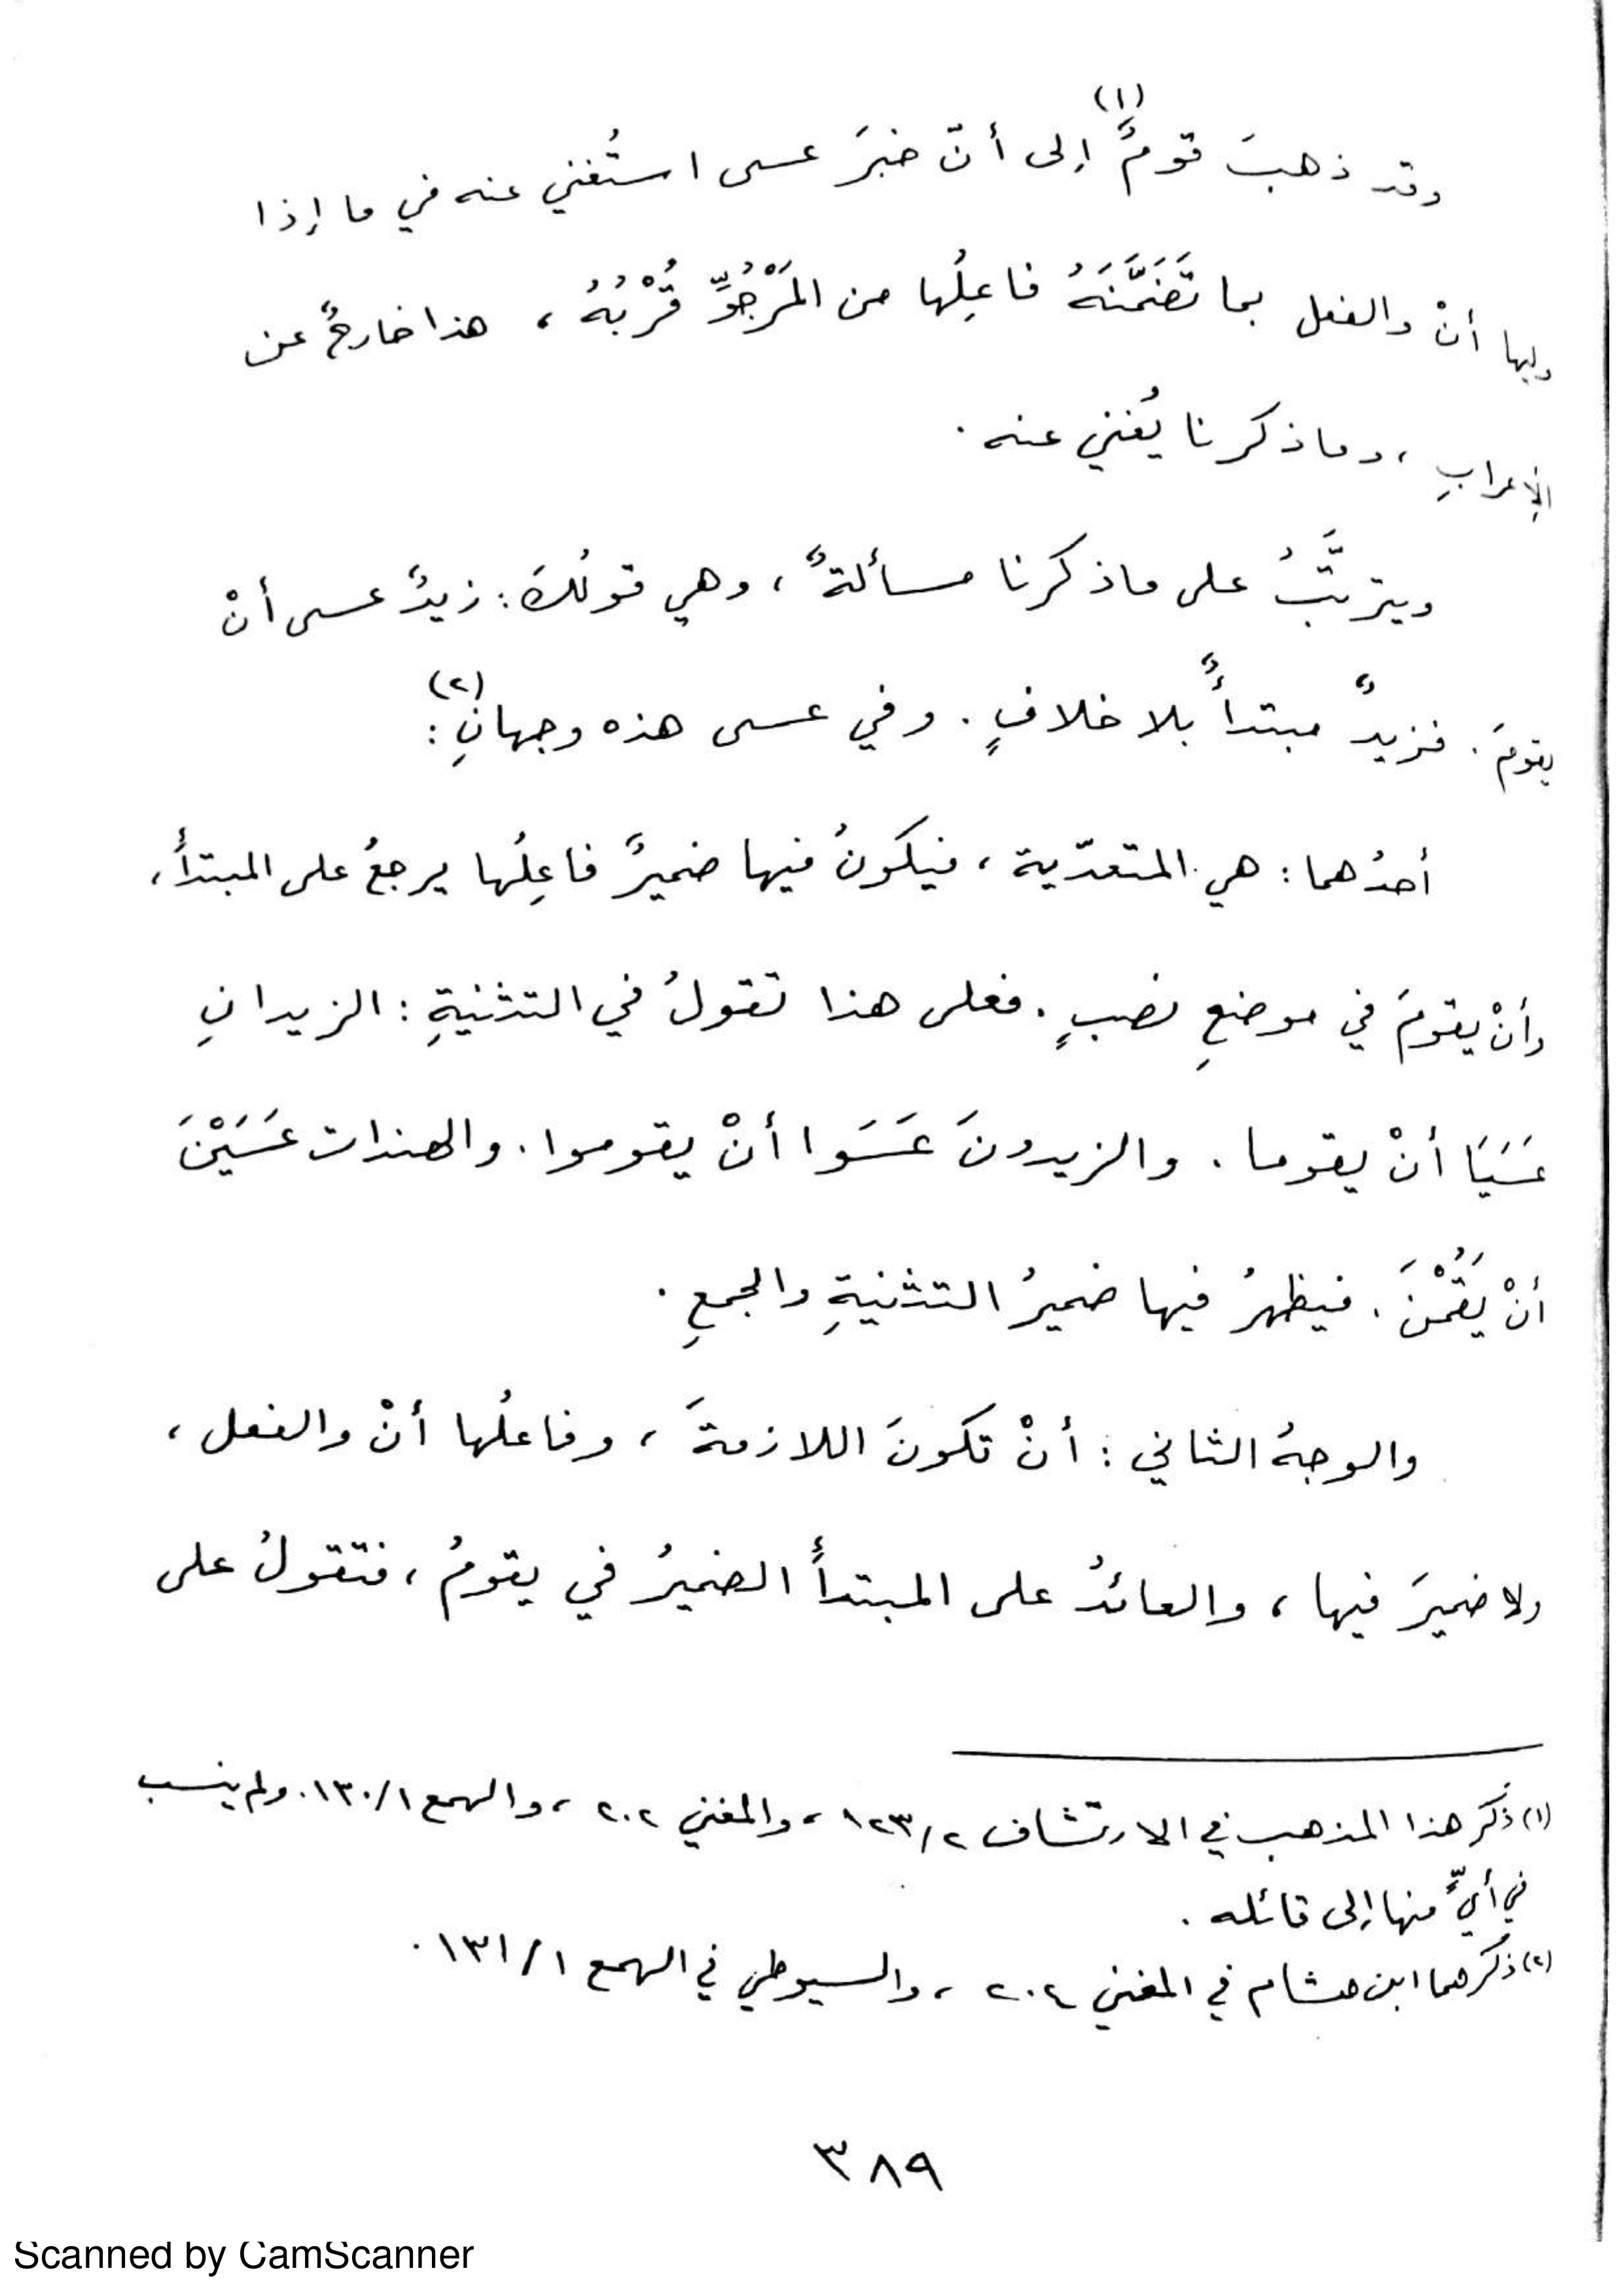 وقد ذهبَ قومٌ (١) إلى أنّ خبرَ عسى استُغني عنه في ما إذا
وليها أنْ والفعل بما تَضَمَّنَهُ فاعِلُها من المَرْجُوِّ قُرْبُهُ ، هذا خارجٌ عن
الإعرابِ ، وما ذكرنا يُغني عنه .
ويترتَّبُ على ما ذكرنا مسألةٌ ، وهي قولُكَ : زيدٌ عسى أنْ
يقومَ . فزيدٌ مبتدأٌ بلا خلافٍ . وفي عسى هذه وجهانِ (٢) :
أحدُهما : هي المتعدّية ، فيكونُ فيها ضميرٌ فاعِلُها يرجعُ على المبتدأ ،
وأنْ يقومَ في موضعِ نصبٍ . فعلى هذا تقولُ في التثنيةِ : الزيدانِ
عَسَيَا أنْ يقوما . والزيدونَ عَسَوا أنْ يقوموا . والهندات عَسَيْنَ
أنْ يَقُمْنَ . فيظهرُ فيها ضميرُ التثنيةِ والجمعِ .
والوجهُ الثاني : أنْ تكونَ اللازمةَ ، وفاعلُها أنْ والفعل ،
ولا ضميرَ فيها ، والعائدُ على المبتدأ الضميرُ في يقومُ ، فتقولُ على
(١) ذُكر هذا المذهب في الارتشاف ١٢٣/٢ ، والمغني ٢٠٢ ، والهمع ١٣٠/١ . ولم ينسب
في أيٍّ منها إلى قائله .
(٢) ذكرهما ابن هشام في المغني ٢٠٤ ، والسيوطي في الهمع ١٣١/١ .
٣٨٩
Scanned by CamScanner